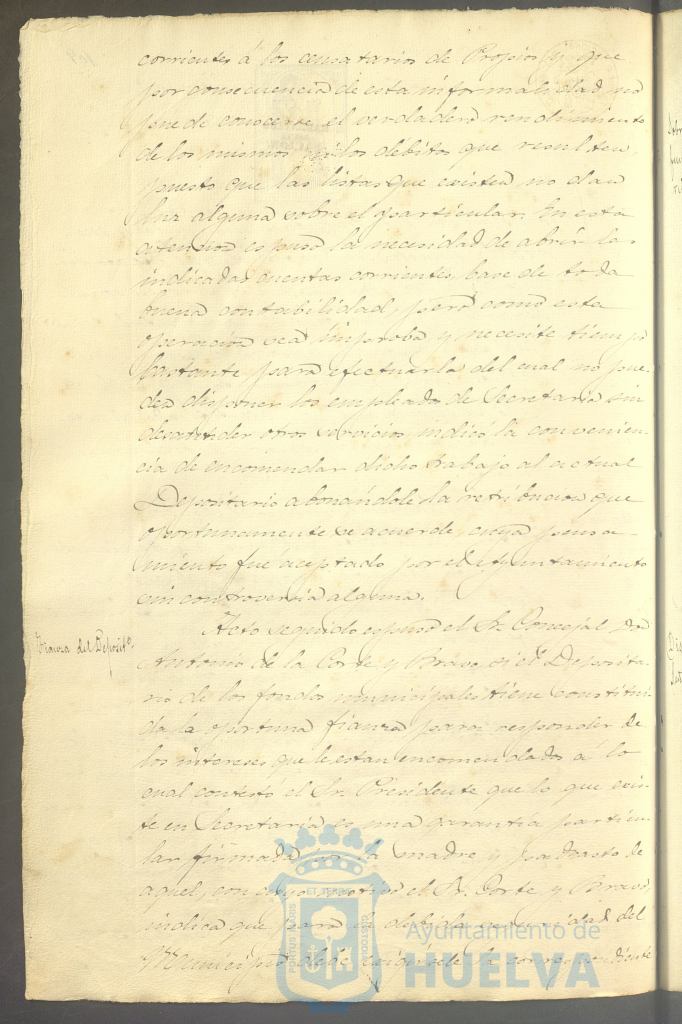 corrientes á los censatarios de Propios y que
por consecuencia de esta informalidad no
puede conocerse el verdadero rendimiento
de los mismos ni los débitos que resulten,
puesto que las listas que existen no dan
luz alguna sobre el particular. En esta
atencion espuso la necesidad de abrir las
indicadas cuentas corrientes, base de toda
buena contabilidad, pero como esta
operacion sea improba y necesite tiempo
bastante para efectuarla del cual no pue-
den disponer los empleados de Secretaria sin
desatender otros servicios, indicó la convenien-
cia de encomendar dicho trabajo al actual
Depositario abonandole la retribucion que
oportunamente se acuerde, cuyo pensa-
miento fué aceptado por el Ayuntamiento
sin controversia alguna.
Fianza del Deposit.º
Acto seguido espuso el Sr. Concejal Don
Antonio de la Corte y Bravo si el Deposita-
rio de los fondos municipales tiene constitui-
da la oportuna fianza para responder de
los intereses que le estan encomendados á lo
cual contestó el Sr. Presidente que lo que exis-
te en Secretaria es una garantia particu-
lar firmada por la madre y padrasto de
aquel, con cuyo motivo el Sr. Corte y Bravo,
indica que para la debida seguridad del
Municipio debe exigirsele la correspondiente
Ayuntamiento de
HUELVA